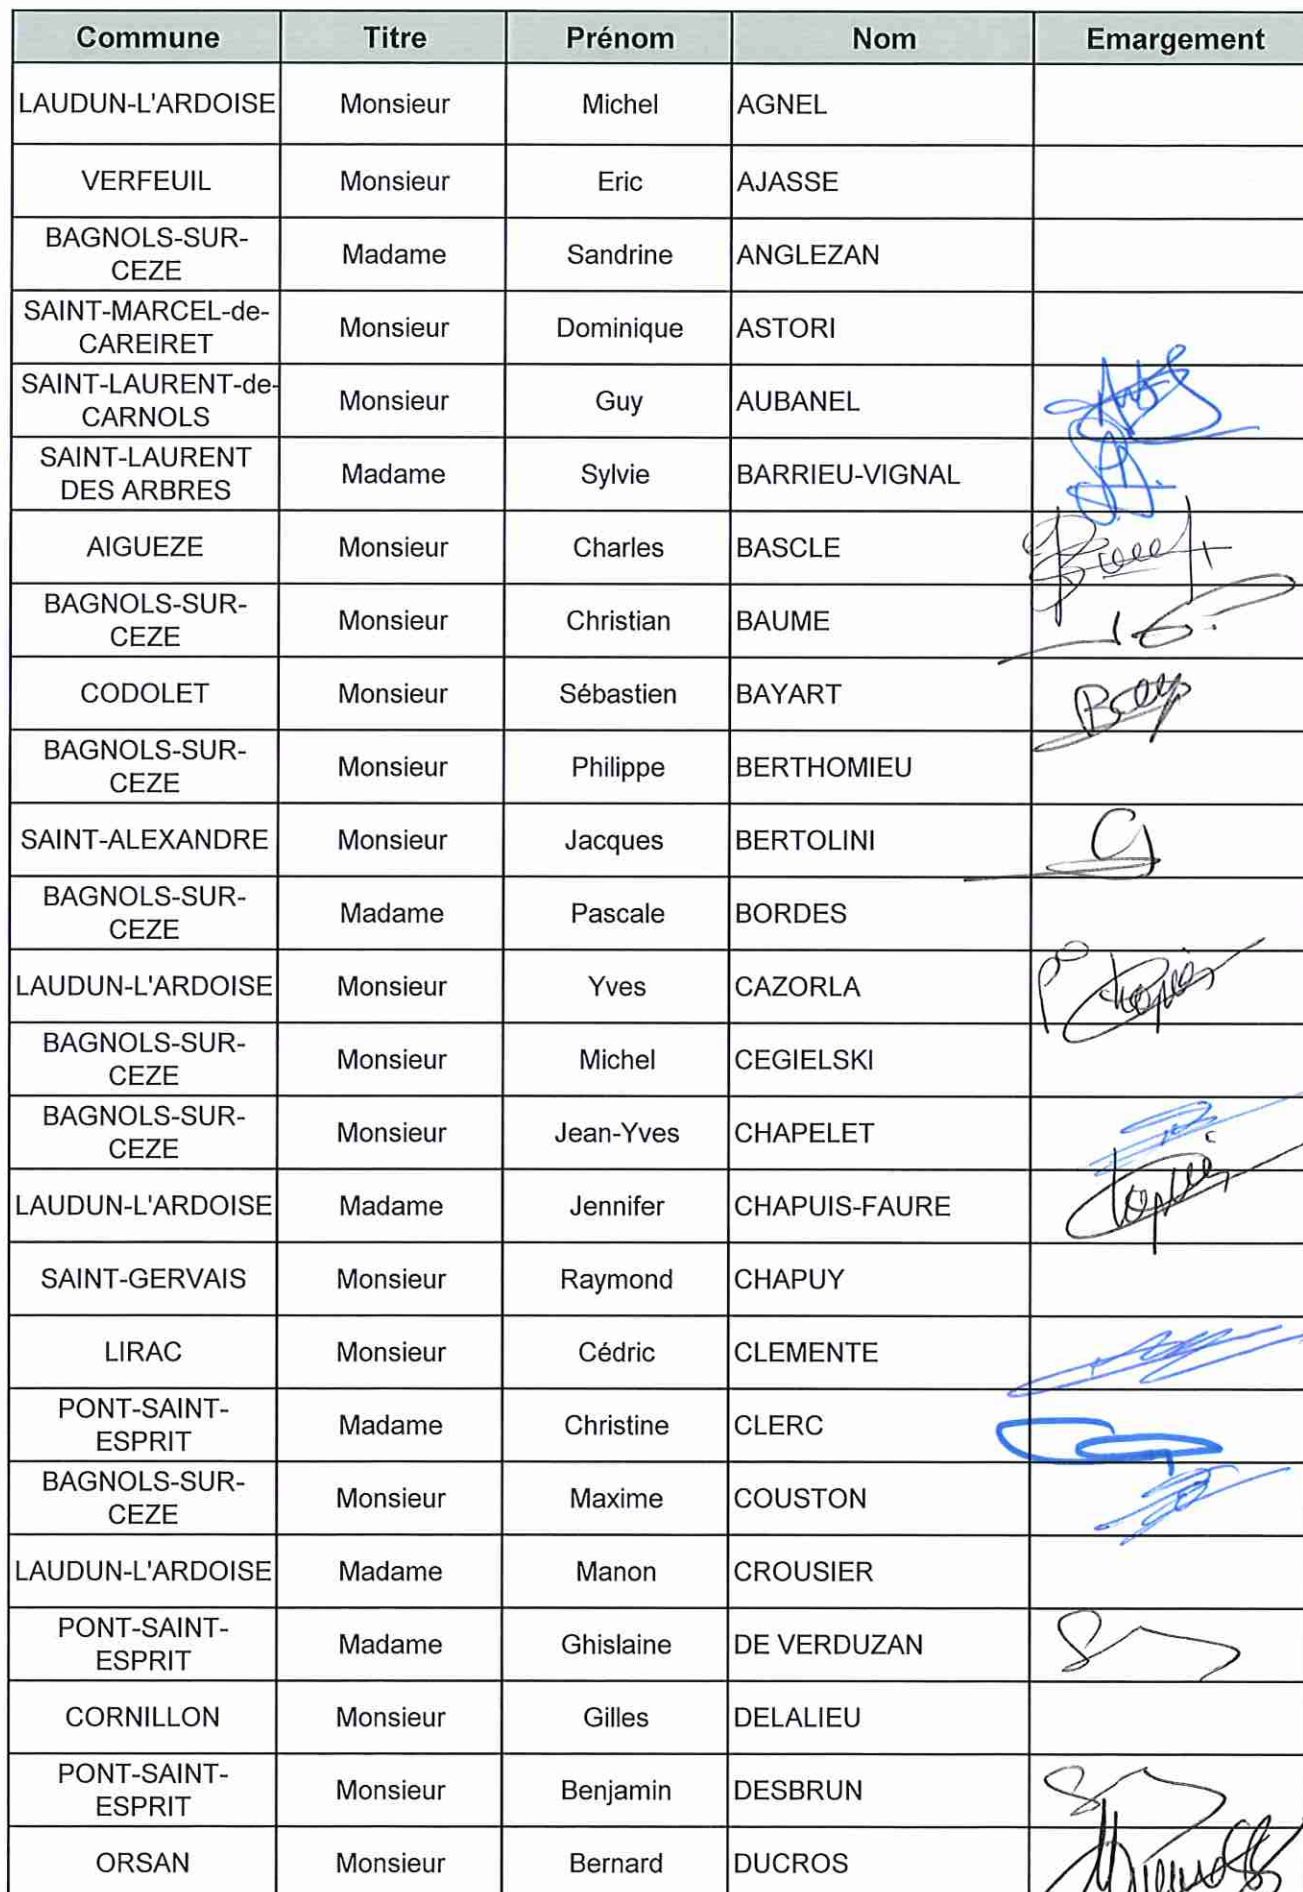 Commune Titre Prénom Nom Emargement
LAUDUN-L'ARDOISE Monsieur Michel AGNEL
VERFEUIL Monsieur Eric AJASSE
BAGNOLS-SUR-
CEZE Madame Sandrine ANGLEZAN
SAINT-MARCEL-de-
CAREIRET Monsieur Dominique ASTORI
SAINT-LAURENT-de-
CARNOLS Monsieur Guy AUBANEL
SAINT-LAURENT
DES ARBRES Madame Sylvie BARRIEU-VIGNAL
AIGUEZE Monsieur Charles BASCLE
BAGNOLS-SUR-
CEZE Monsieur Christian BAUME
CODOLET Monsieur Sébastien BAYART
BAGNOLS-SUR-
CEZE Monsieur Philippe BERTHOMIEU
SAINT-ALEXANDRE Monsieur Jacques BERTOLINI
BAGNOLS-SUR-
CEZE Madame Pascale BORDES
LAUDUN-L'ARDOISE Monsieur Yves CAZORLA
BAGNOLS-SUR-
CEZE Monsieur Michel CEGIELSKI
BAGNOLS-SUR-
CEZE Monsieur Jean-Yves CHAPELET
LAUDUN-L'ARDOISE Madame Jennifer CHAPUIS-FAURE
SAINT-GERVAIS Monsieur Raymond CHAPUY
LIRAC Monsieur Cédric CLEMENTE
PONT-SAINT-
ESPRIT Madame Christine CLERC
BAGNOLS-SUR-
CEZE Monsieur Maxime COUSTON
LAUDUN-L'ARDOISE Madame Manon CROUSIER
PONT-SAINT-
ESPRIT Madame Ghislaine DE VERDUZAN
CORNILLON Monsieur Gilles DELALIEU
PONT-SAINT-
ESPRIT Monsieur Benjamin DESBRUN
ORSAN Monsieur Bernard DUCROS